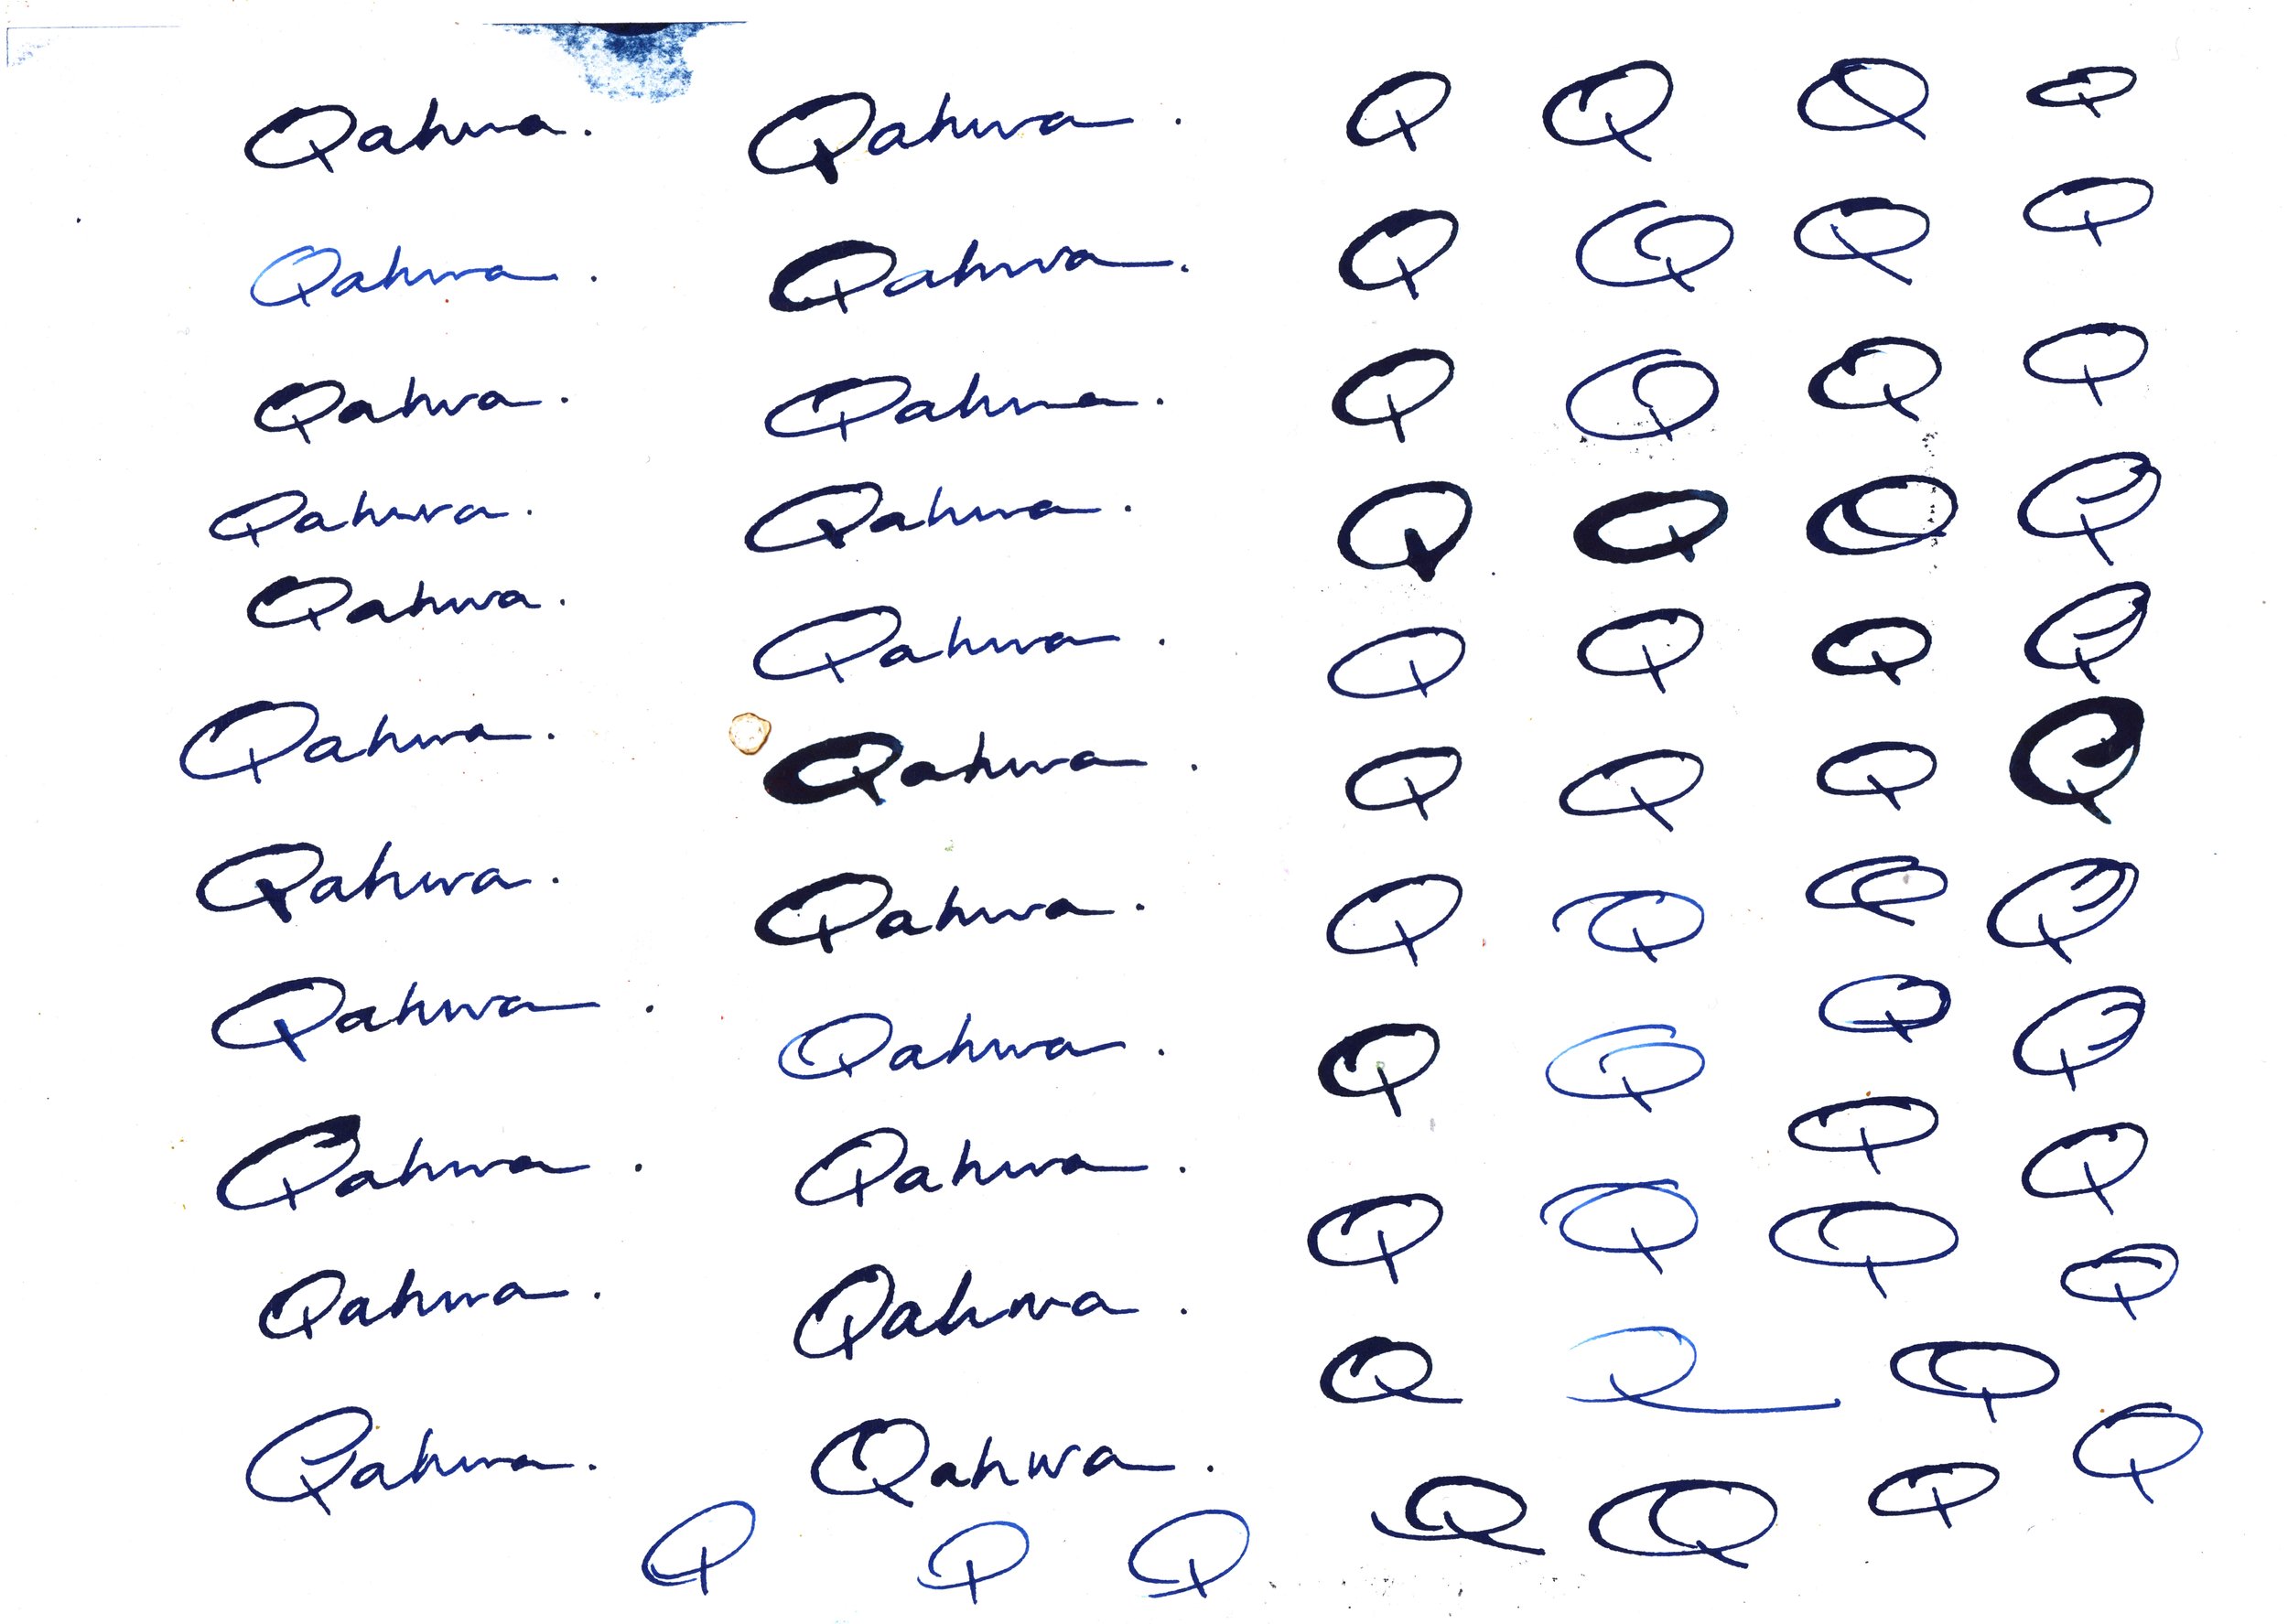 Qahwa. Qahwa. Q Q Q Q
Qahwa. Qahwa. Q Q Q Q
Qahwa. Qahwa. Q Q Q Q
Qahwa. Qahwa. Q Q Q Q
Qahwa. Qahwa. Q Q Q Q
Qahwa. Qahwa. Q Q Q Q
Qahwa. Qahwa. Q Q Q Q
Qahwa. Qahwa. Q Q Q Q
Qahwa. Qahwa. Q Q Q Q
Qahwa. Qahwa. Q Q Q Q
Qahwa. Qahwa. Q Q Q Q
Q Q Q Q